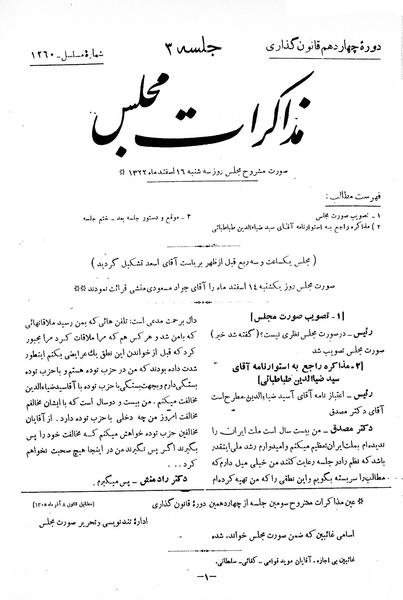 دورهٔ چهاردهم قانون گذاری
جلسه ۳
شمارهٔ مسلسل - ۱۲۶۰
مذاکرات مجلس
صورت مشروح مجلس روز سه شنبه ۱۶ اسفند ماه ۱۳۲۲ ✻
فهرست مطالب:
۱ - تصویب صورت مجلس
۲) مذاکره راجع به استوارنامه آقای سید ضیاءالدین طباطبائی
۳ - موقع و دستور جلسه بعد - ختم جلسه
( مجلس یکساعت و سه ربع قبل از ظهر بریاست آقای اسعد تشکیل گردید )
صورت مجلس روز یکشنبه ۱۴ اسفند ماه را آقای جواد مسعودی منشی قرائت نمودند ✻✻
[۱- تصویب صورت مجلس]
رئیس - در صورت مجلس نظری نیست؟ (گفته شد خیر)
صورت مجلس تصویب شد
[۲- مذاکره راجع به استوارنامه آقای
سید ضیاءالدین طباطبائی]
رئیس - اعتبار نامهٔ آقای آسید ضیاءالدین مطرح است
آقای دکتر مصدق
دکتر مصدق - من بیست سال است ملت ایران را
ندیده‌ام بملت ایران تعظیم میکنم و امیدوارم رشد ملی اینقدر
باشد که نظم را در جلسه رعایت کنند من خیلی میل دارم که
مطالب را سربسته بگویم و این نطقی را که من تهیه کرده‌ام
دال بر حمت مدعی است: تلفن هائی که بمن رسید ملاقاتهائی
که با من شد و هر کس هم که مرا ملاقات کرد مرا مجبور
کرد که قبل از خواندن این نطق یک عرایضی بکنم اینطور
شدت داده بودند که من در حزب توده هستم و با حزب توده
بستگی دارم و بجهت بستگی با حزب توده با آقا سید ضیاءالدین
مخالفت میکنم. من بیست و دو سال است که با ایشان مخالفم
مخالفت امروز من چه دخلی با حزب توده دارد. از آقایان
مخالفین حزب توده خواهش میکنم که مخالفت خود را پس
بگیرند اگر پس نگیرند من در اینجا هیچ صحبت نخواهم
کرد...
دکتر رادمنش - پس میگیرم.
✻ عین مذاکرات مشروح سومین جلسه از چهاردهمین دورهٔ قانون گذاری
(مطابق قانون ۸ آذر ماه ۱۳۰۵)
ادارهٔ تندنویسی و تحریر صورت مجلس
✻✻ اسامی غائبین که ضمن صورت مجلس خوانده شده
غائبین بی اجازه. آقایان موید قوامی - کفائی - سلطانی.
-۱-